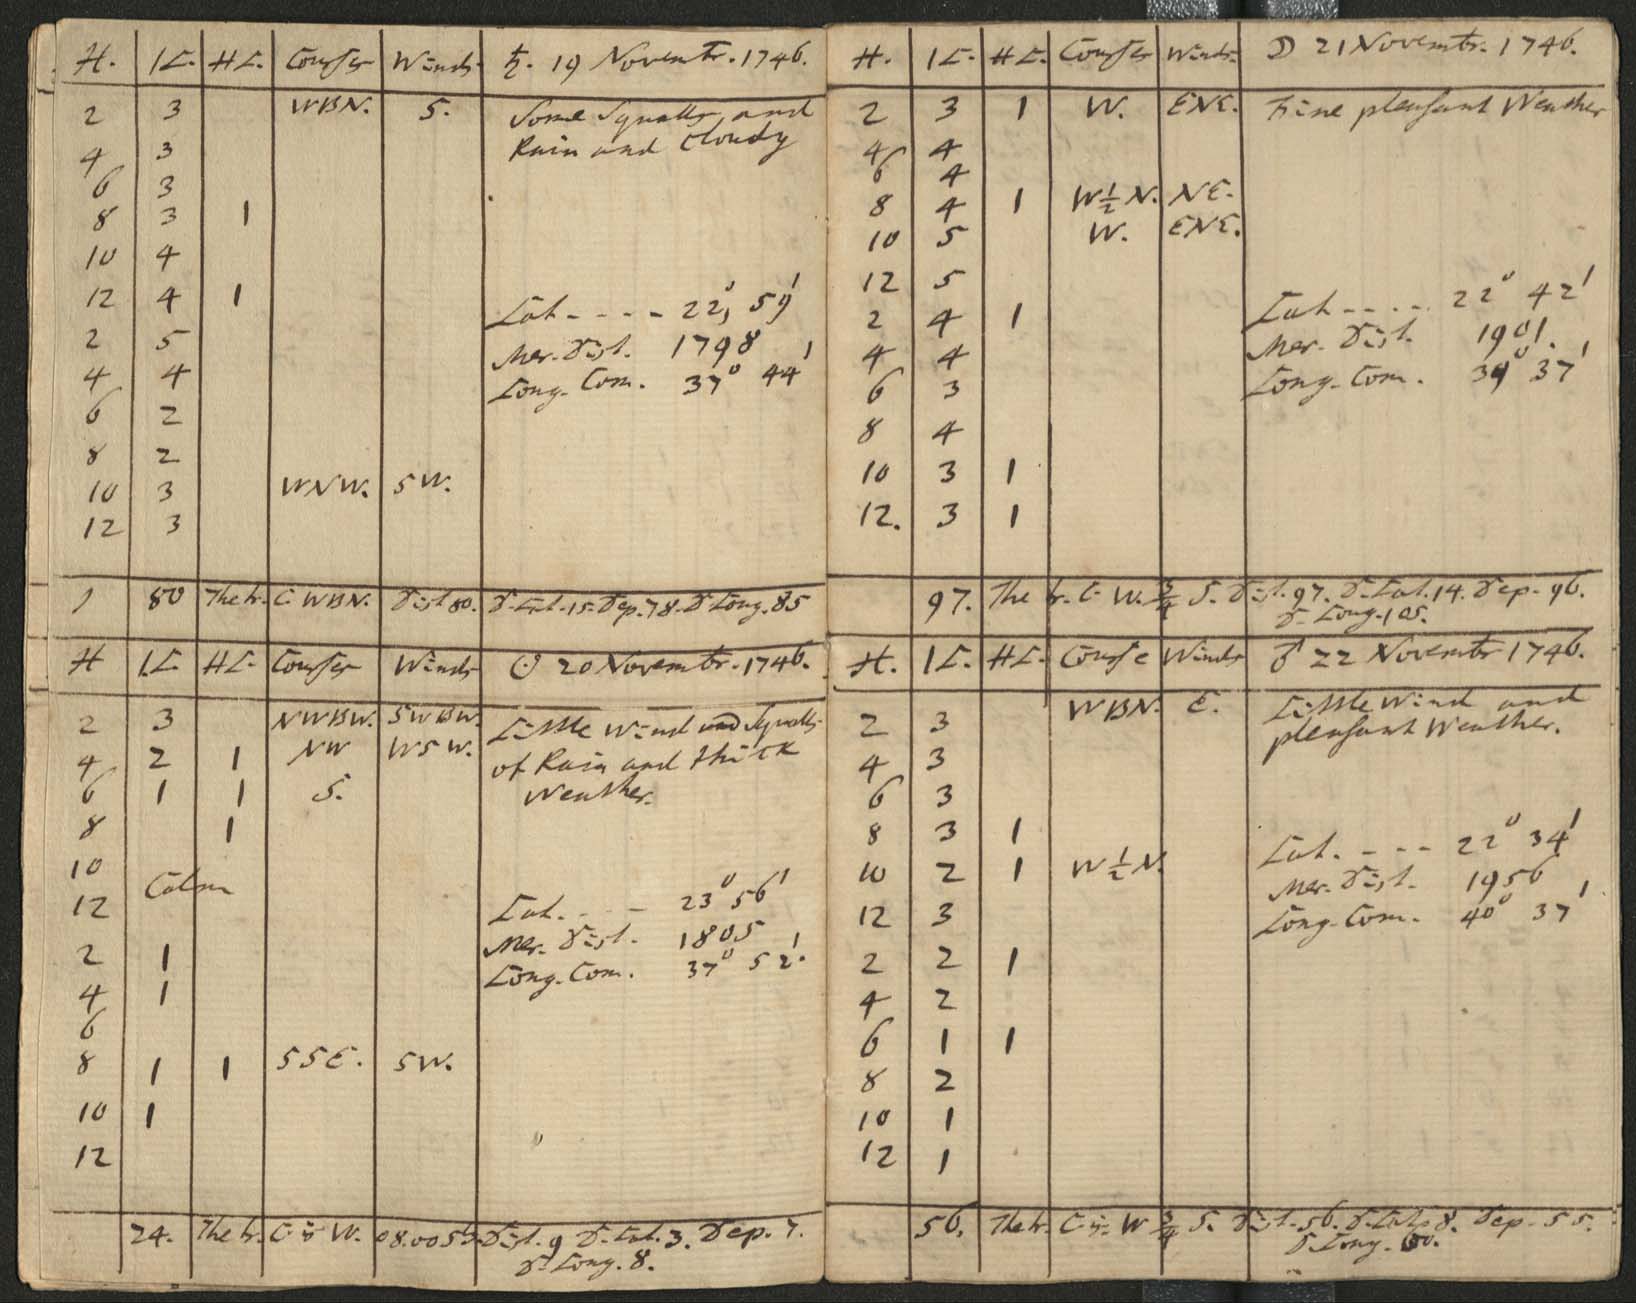 H. K. HK. Courses Winds ♄. 19 Novembr. 1746.
2 3 WBN. S. Some Squalls and
Rain and Cloudy
4 3
6 3
8 3 1
10 4
12 4 1 Lat. - - - - 22°, 59'
2 5 Mer. Dist. 1798
4 4 Long. Com. 37° 44'
6 2
8 2
10 3 WNW. SW.
12 3
80 The tr. C. WBN. Dist 80. D. Lat. 15. Dep. 78. D Long. 85
H K HK. Courses Winds ☉ 20 Novembr. 1746.
2 3 NWBW. SWBW. Little Wind and Squalls
4 2 1 NW WSW. of Rain and thick
6 1 1 S. Weather.
8 1
10
Calm
12 Lat. - - - 23° 56'
Mer. Dist. 1805
2 1 Long. Com. 37° 52'.
4 1
6
8 1 1 SSE. SW.
10 1
12
24. The tr. C is W. 08.00 S Dist. 9 D. Lat. 3. Dep. 7.
D Long. 8.
H. K. HK. Courses Winds ☽ 21 Novembr. 1746.
2 3 1 W. ENE. Fine pleasant Weather
4 4
6 4
8 4 1 W½N. NE.
10 5 W. ENE.
12 5 Lat - - - - 22° 42'
2 4 1 Mer. Dist. 1901.
4 4 Long. Com. 39° 37'
6 3
8 4
10 3 1
12. 3 1
97. The tr. C. W. ¾ S. Dist. 97. D. Lat. 14. Dep. 96.
D Long. 105.
H. K. HK. Course Winds ♂ 22 Novembr 1746.
2 3 WBN. E. Little Wind and
pleasant Weather.
4 3
6 3
8 3 1 Lat. - - - 22° 34'
10 2 1 W½N. Mer. Dist. 1956
12 3 Long. Com. 40° 37'
2 2 1
4 2
6 1 1
8 2
10 1
12 1
56. The tr. C is W ¾ S. Dist. 56. D. Lat. 8. Dep. 55.
D Long. 60.